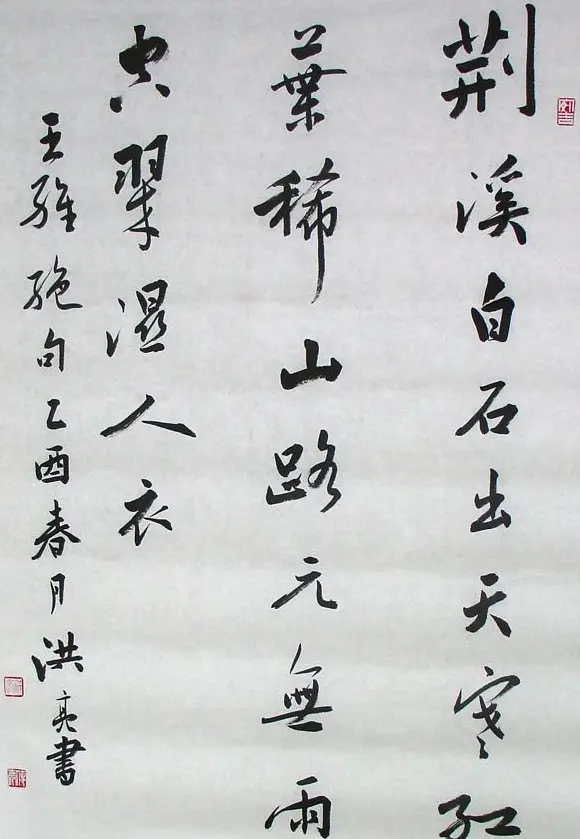 荆溪白石出天寒红
葉稀山路元無雨
空翠濕人衣
王維绝句乙酉春月洪亮書